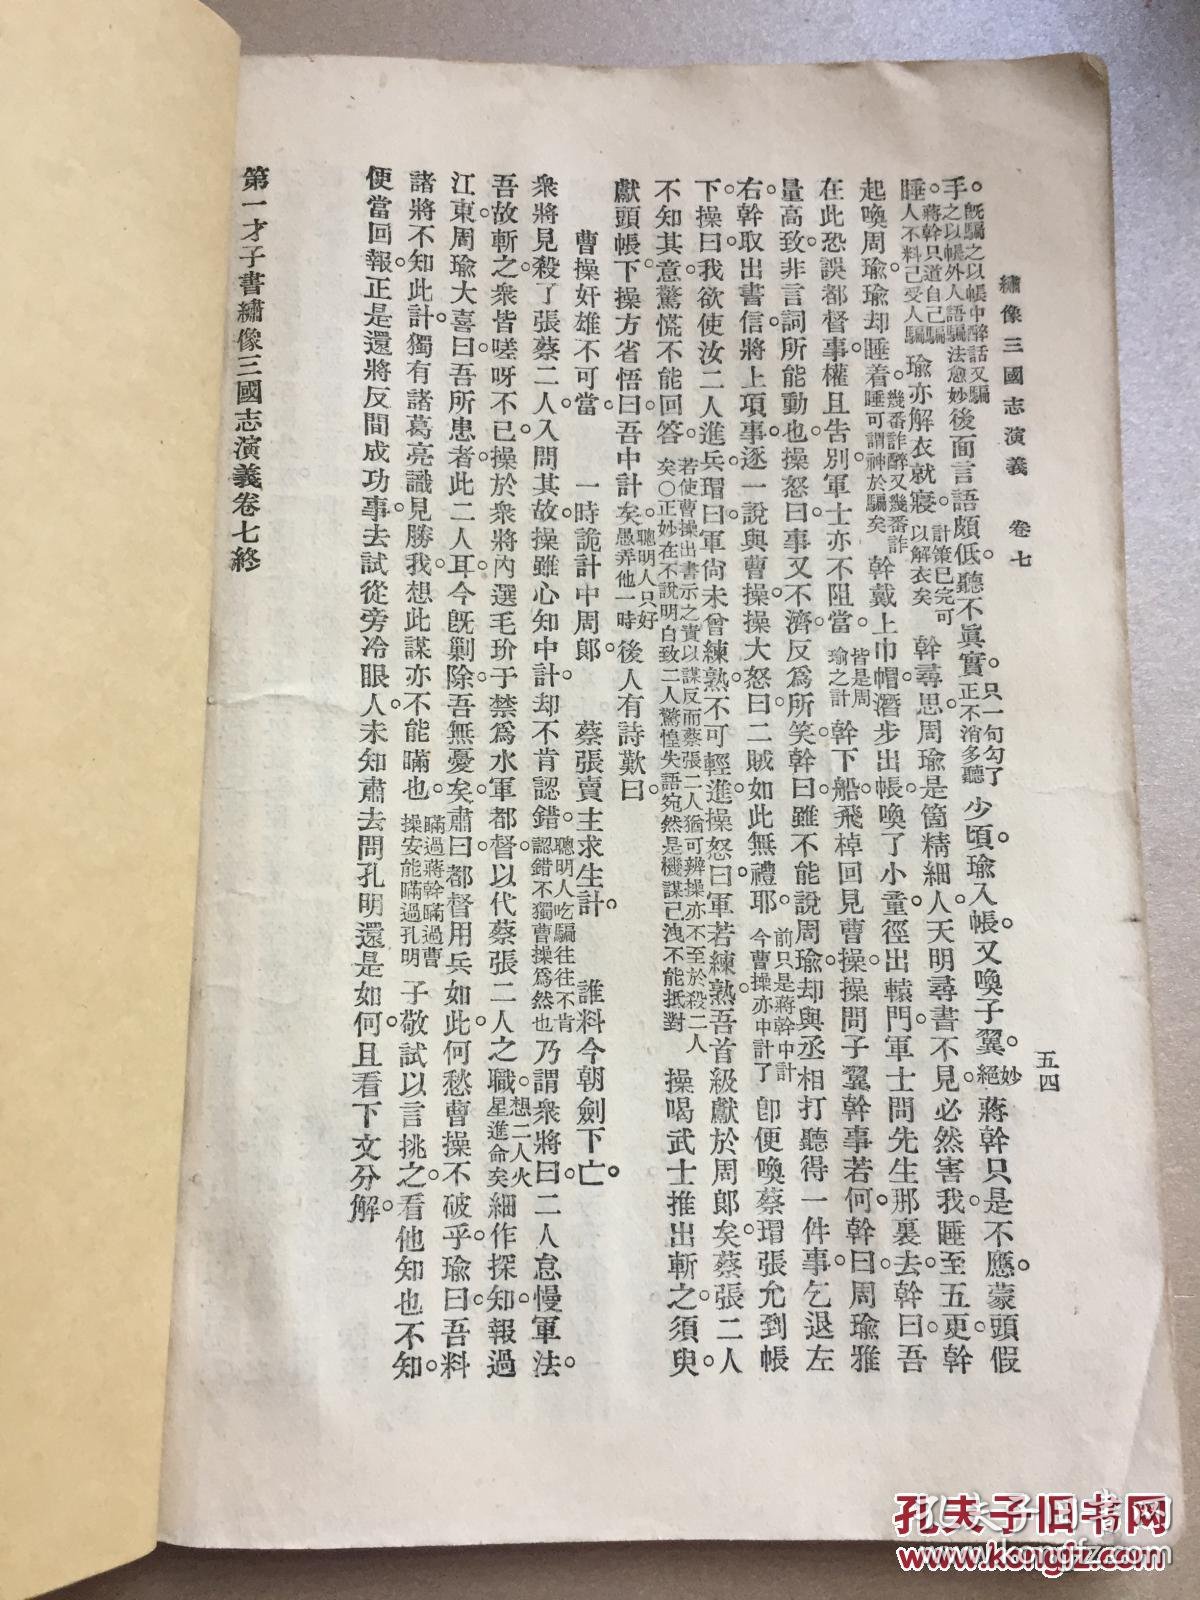 繡像三國志演義　卷七　五四
手。既騙之以帳中醉話又騙之以帳外人語騙法愈妙後面言語頗低。聽不眞實。只一句勾了正不消多聽少頃。瑜入帳。又喚子翼。妙絕蔣幹只是不應。蒙頭假
睡。蔣幹只道自己騙人不料己受人騙瑜亦解衣就寢。計策已完可以解衣矣幹尋思。周瑜是箇精細人。天明尋書不見。必然害我。睡至五更。幹
起喚周瑜。瑜却睡着。幾番詐醉又幾番詐睡可謂神於騙矣幹戴上巾幘。潛步出帳。喚了小童。徑出轅門。軍士問先生那裏去。幹曰。吾
在此恐誤都督事。權且告別。軍士亦不阻當。皆是周瑜之計幹下船。飛棹回見曹操。操問子翼幹事若何。幹曰。周瑜雅
量高致。非言詞所能動也。操怒曰。事又不濟。反爲所笑。幹曰。雖不能說周瑜。却與丞相打聽得一件事。乞退左
右。幹取出書信。將上項事逐一說與曹操。操大怒曰。二賊如此無禮耶。前只是蔣幹中計今曹操亦中計了卽便喚蔡瑁張允到帳
下。操曰。我欲使汝二人進兵。瑁曰。軍尙未曾練熟。不可輕進。操怒曰。軍若練熟。吾首級獻於周郎矣。蔡張二人
不知其意。驚慌不能回答。若使曹操出書示之責以謀反而蔡張二人猶可辨操亦不至於殺二人矣○正妙在不說明白致二人驚惶失語宛然是機謀已洩不能抵對操喝武士推出斬之。須臾。
獻頭帳下。操方省悟曰。吾中計矣。聰明人只好愚弄他一時後人有詩歎曰。
曹操奸雄不可當。　一時詭計中周郎。　蔡張賣主求生計。　誰料今朝劍下亡。
衆將見殺了張蔡二人。入問其故。操雖心知中計。却不肯認錯。聰明人吃騙往往不肯認錯不獨曹操爲然也乃謂衆將曰。二人怠慢軍法。
吾故斬之。衆皆嗟呀不已。操於衆將內選毛玠于禁爲水軍都督。以代蔡張二人之職。想二人火星進命矣細作探知。報過
江東。周瑜大喜曰。吾所患者此二人耳。今旣剿除。吾無憂矣。肅曰。都督用兵如此。何愁曹操不破乎。瑜曰。吾料
諸將不知此計。獨有諸葛亮識見勝我。想此謀亦不能瞞也。瞞過蔣幹瞞過曹操安能瞞過孔明子敬試以言挑之。看他知也不知。
便當回報。正是還將反間成功事。去試從旁冷眼人。未知肅去問孔明還是如何。且看下文分解。
第一才子書繡像三國志演義卷七終
孔夫子旧书网
www.kongfz.com